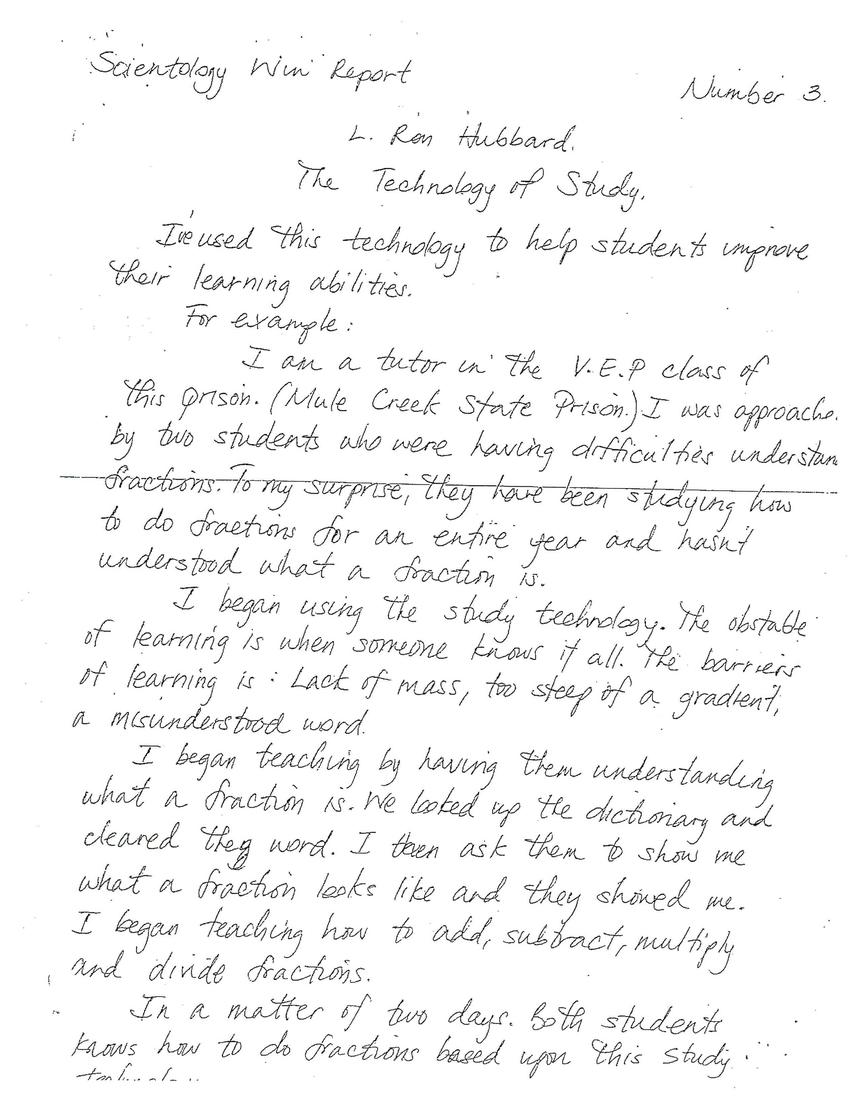 Scientology Win Report
Number 3.
L. Ron Hubbard.
The Technology of Study.
I've used this technology to help students improve
their learning abilities.
For example:
I am a tutor in the V.E.P class of
this prison. (Mule Creek State Prison.) I was approache
by two students who were having difficulties understan
fractions. To my surprise, they have been studying how
to do fractions for an entire year and hasn't
understood what a fraction is.
I began using the study technology. The obstable
of learning is when someone knows it all. The barriers
of learning is: Lack of mass, too steep of a gradient,
a misunderstood word.
I began teaching by having them understanding
what a fraction is. We looked up the dictionary and
cleared they word. I then ask them to show me
what a fraction looks like and they showed me.
I began teaching how to add, subtract, multiply
and divide fractions.
In a matter of two days. Both students
knows how to do fractions based upon this study